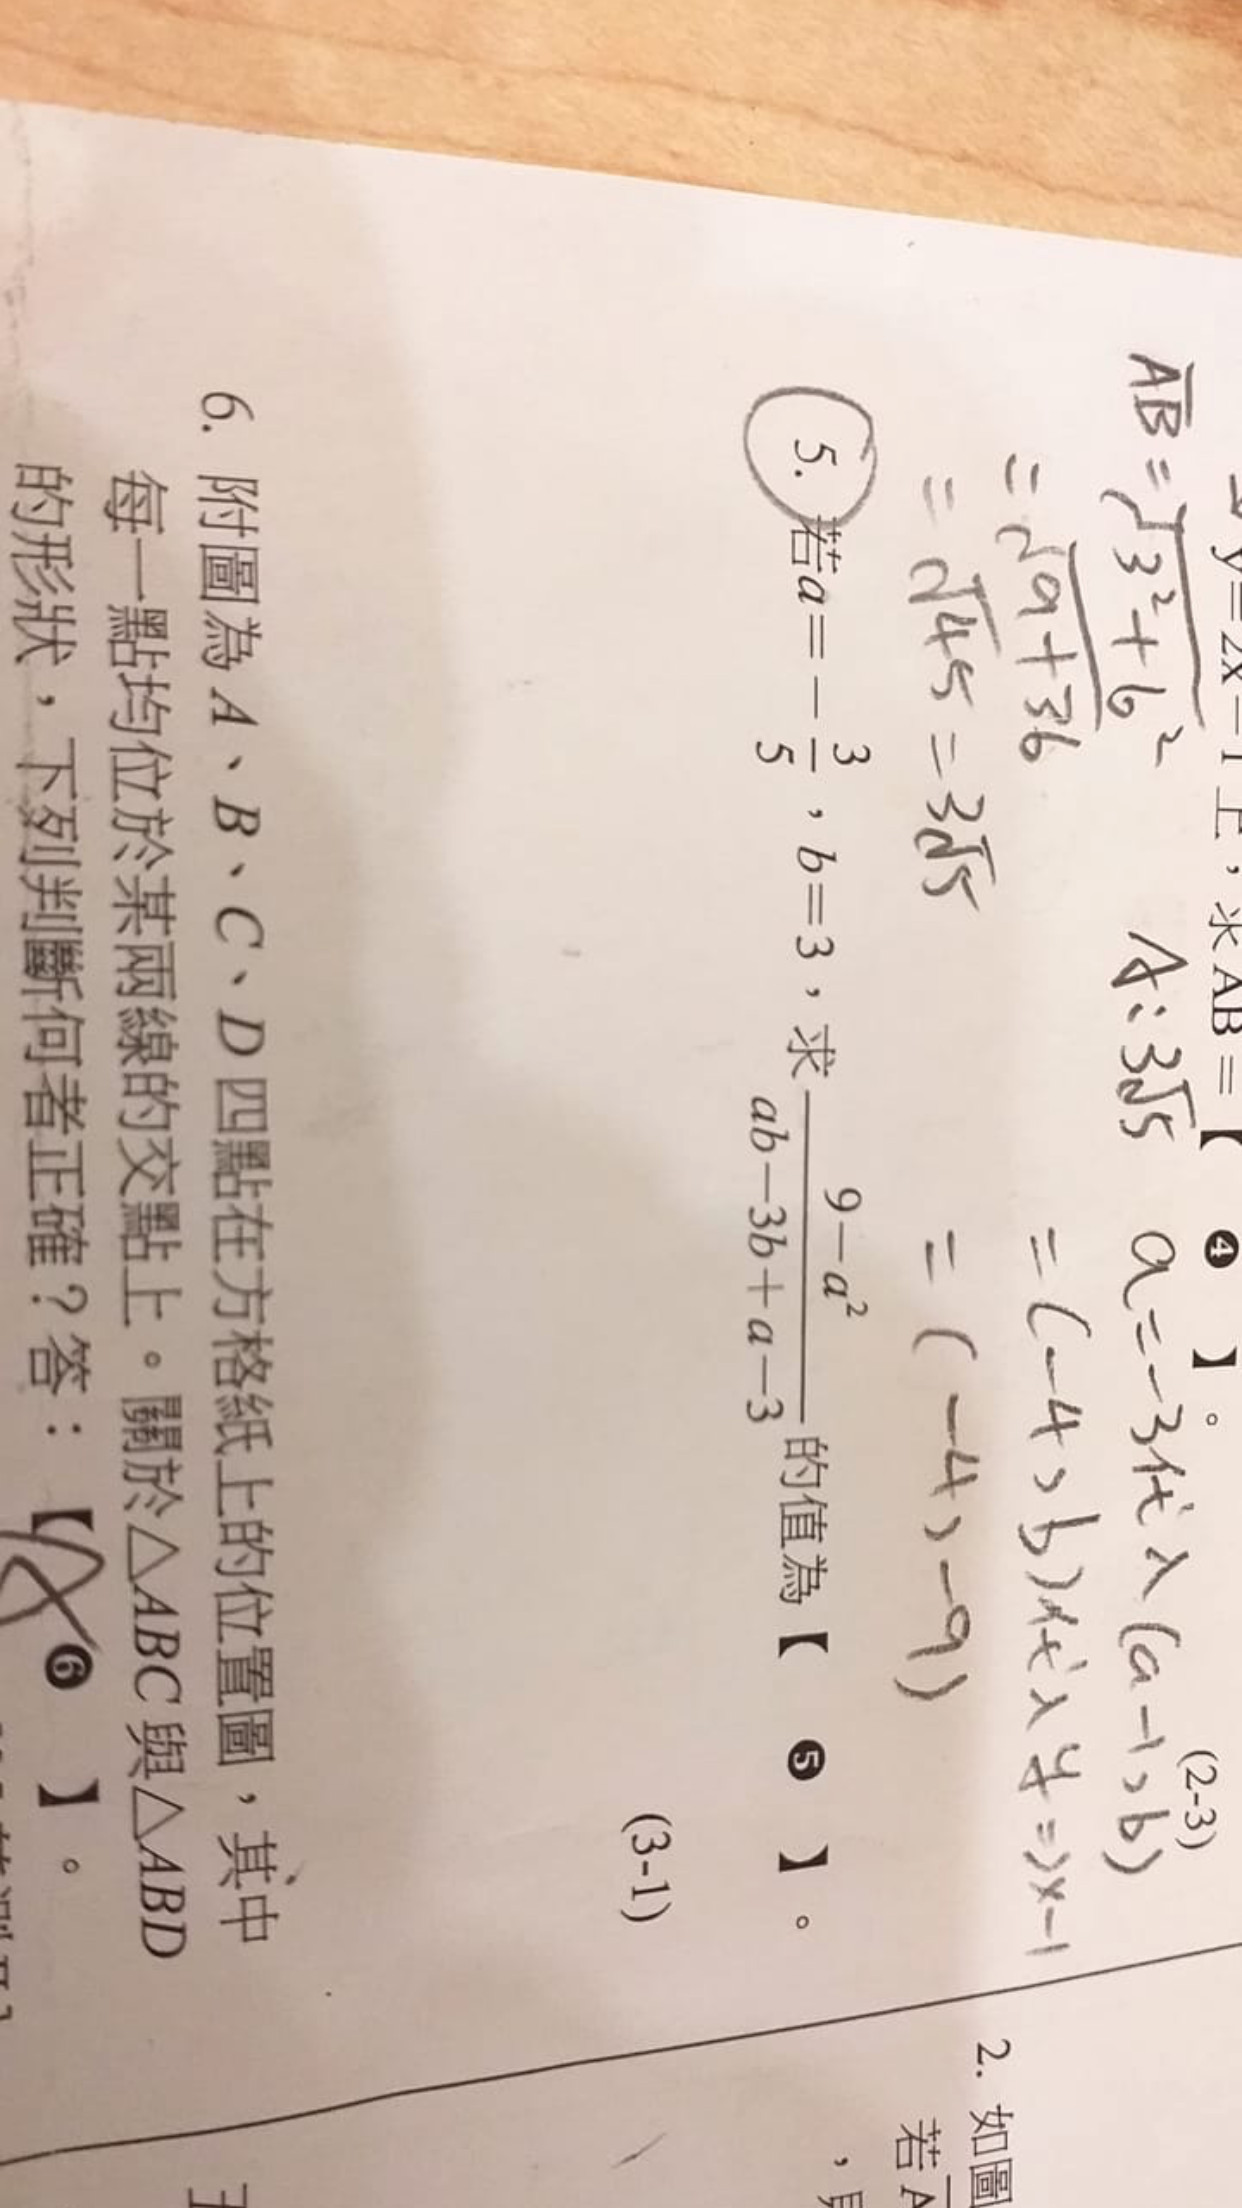 y=2x-1上,求AB=【 ❹ 】。
(2-3)
AB=√3²+6²
A:3√5
a=-3代入(a-1,b)
=√9+36
=(-4,b)代入y=2x-1
=√45=3√5
=(-4,-9)
5. 若a=-3/5,b=3,求 9-a²/ab-3b+a-3 的值為【 ❺ 】。
(3-1)
6. 附圖為A、B、C、D四點在方格紙上的位置圖,其中
每一點均位於某兩線的交點上。關於△ABC與△ABD
的形狀,下列判斷何者正確?答:【 ❻ 】。
2. 如圖
若A